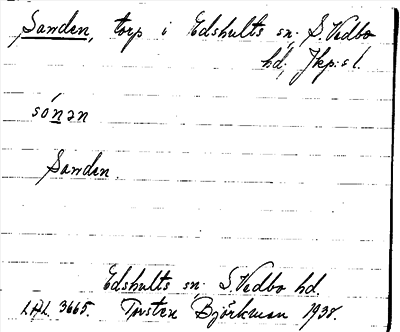 Sanden, torp i Edshults sn. S. Vedbo
hd, Jkp:s l.
sónən
Sanden.
Edshults sn. S. Vedbo hd.
LAL. 3665. Torsten Björkman 1938.